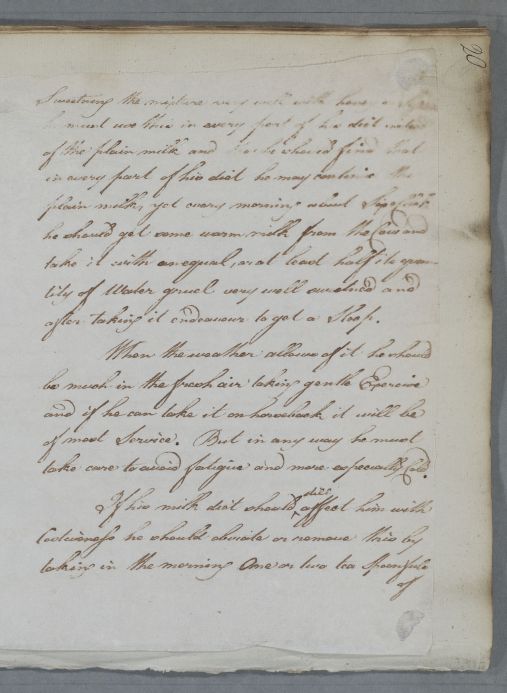 20
Sweetning the mixture very well with honey or Sugar
he must use this in every part of his diet instead
of the plain milk and he should find that
in every part of his diet he may continue the
plain milk, yet every morning about
he should get some warm milk from the Cow and
take it with an equal, or at least half its quan
tity of Water gruel very well sweetned and
after taking it endeavour to get a Sleep.
When the weather allows of it he should
be much in the fresh air taking gentle Exercise
and if he can take it on horseback it will be
of most Service. But in any way he must
take care to avoid fatigue and more especially Cold.
still
If his milk diet should affect him with
Costiveness he should obviate or remove this by
taking in the morning One or two tea Spoonfuls
of